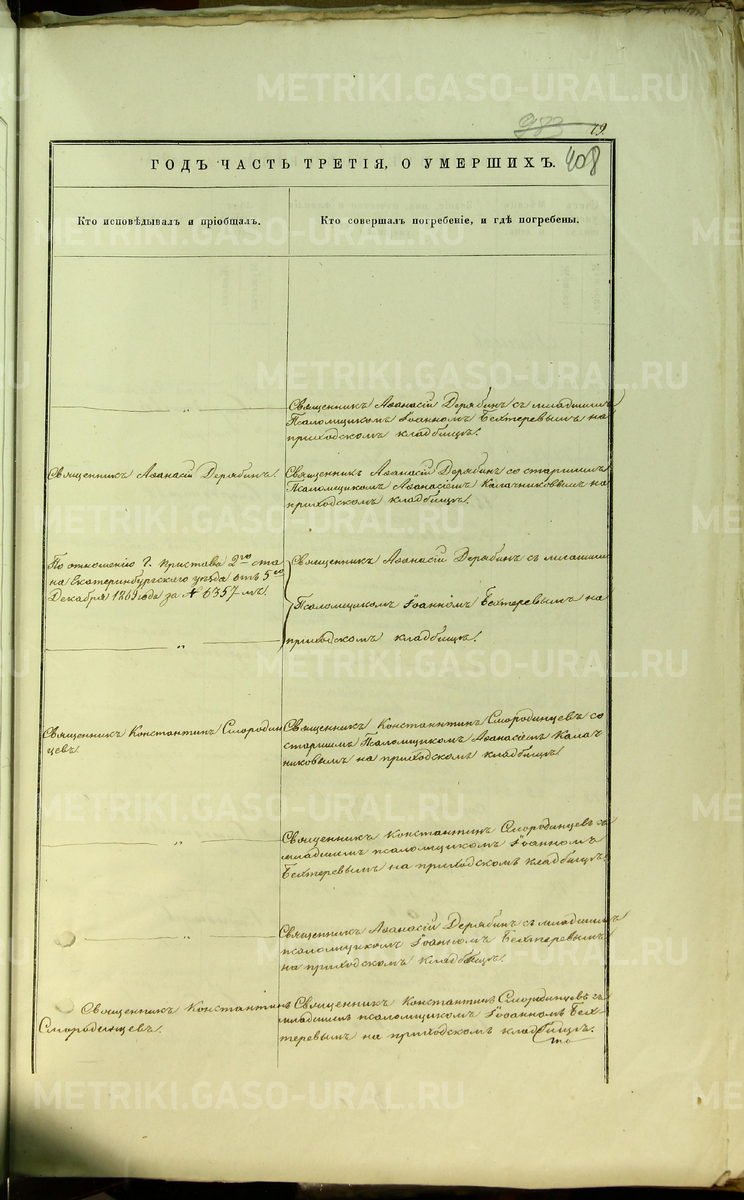 METRIKI.GASO-URAL.RU
983 79.
408
ГОДЪ ЧАСТЬ ТРЕТІЯ, О УМЕРШИХЪ.
Кто исповѣдывалъ и пріобщалъ.
Кто совершалъ погребеніе, и гдѣ погребены.
„
Священникъ Аѳанасій Дерябинъ съ младшимъ
Псаломщикомъ Іоанномъ Бехтеревымъ на
приходскомъ кладбищѣ.
Священникъ Аѳанасій Дерябинъ.
Священникъ Аѳанасій Дерябинъ со старшимъ
Псаломщикомъ Аѳанасіемъ Калачниковымъ на
приходскомъ кладбищѣ.
По отношенію Г. Пристава 2го ста
на Екатеринбургскаго уѣзда отъ 5го
Декабря 1869 года за № 6357 мъ.
„
Священникъ Аѳанасій Дерябинъ съ младшим
Псаломщикомъ Іоанномъ Бехтеревымъ на
приходскомъ кладбищѣ.
Священникъ Константинъ Смородин
цевъ.
Священникъ Константинъ Смородинцевъ со
старшимъ Псаломщикомъ Аѳанасіемъ Калач
никовымъ на приходскомъ кладбищѣ.
„
Священникъ Константинъ Смородинцевъ съ
младшимъ псаломщикомъ Іоанномъ
Бехтеревымъ на приходскомъ кладбищѣ.
„
Священникъ Аѳанасій Дерябинъ съ младшимъ
псаломщикомъ Іоанномъ Бехтеревымъ
на приходскомъ кладбищѣ.
Священникъ Константинъ
Смородинцевъ.
Священникъ Константинъ Смородинцевъ съ
младшимъ псаломщикомъ Іоанномъ Бех-
теревымъ на приходскомъ кладбищѣ.